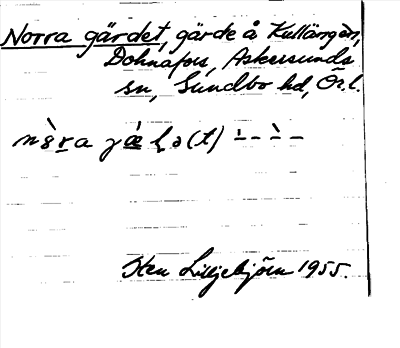 Norra gärdet, gärde å Kullängen,
Dohnafors, Askersunds
sn, Sundbo hd, Ör. l.
Sten Liljebjörn 1955.